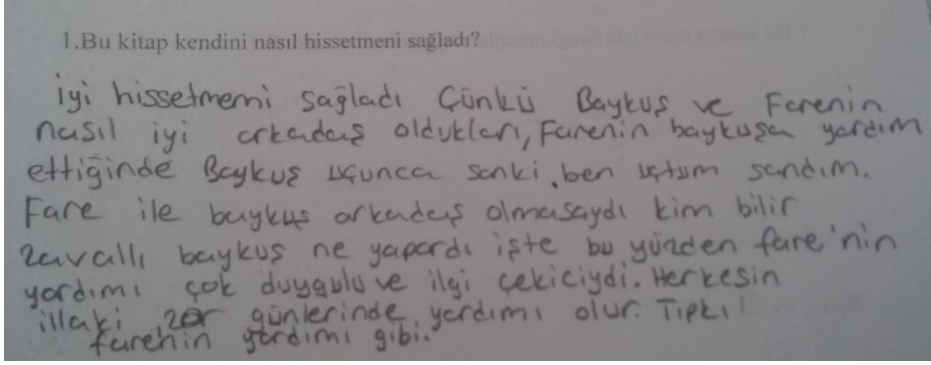 1.Bu kitap kendini nasıl hissetmeni sağladı?
İyi hissetmemi sağladı Çünkü Baykuş ve Farenin
nasıl iyi arkadaş oldukları, Farenin baykuşa yardım
ettiğinde Baykuş uçunca sanki ben uçtum sandım.
Fare ile baykuş arkadaş olmasaydı kim bilir
zavallı baykuş ne yapardı işte bu yüzden fare'nin
yardımı çok duygulu ve ilgi çekiciydi. Herkesin
illaki zor günlerinde yardımı olur. Tıpkı
farenin yardımı gibi.